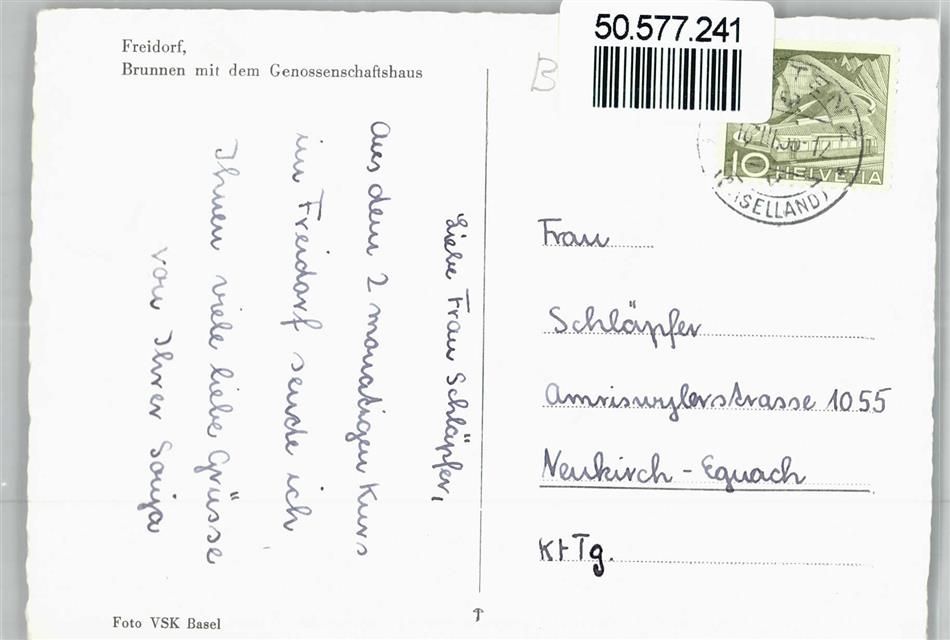 Freidorf,
Brunnen mit dem Genossenschaftshaus
50.577.241
B
10 HELVETIA
(BASELLAND)
Liebe Frau Schläpfer,
Aus dem 2 monatigen Kurs
im Freidorf sende ich
Ihnen viele liebe Grüsse
von Ihrer Sonja
Frau
Schläpfer
Amriswylerstrasse 1055
Neukirch - Egnach
Kt Tg.
Foto VSK Basel